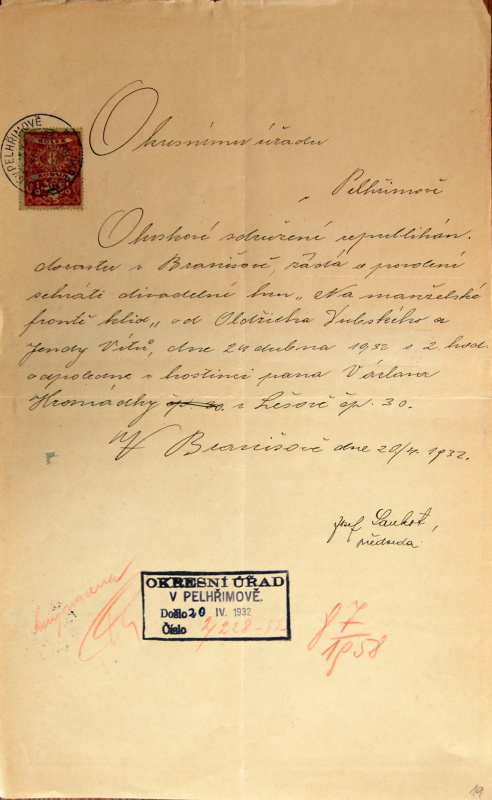 PELHŘIMOVĚ
KOLEK
8
Okresnímu úřadu
v Pelhřimově
Okrskové sdružení republikán.
dorostu v Branišově, žádá o povolení
sehráti divadelní hru „Na manželské
frontě klid„ od Oldřicha Dubského a
Jendy Vítů, dne 24 dubna 1932 o 2 hod.
odpoledne v hostinci pana Václava
Hromádky čp. 30. v Lešově čp. 30.
V Branišově dne 20/4. 1932.
Josef
předseda.
OKRESNÍ ÚŘAD
V PELHŘIMOVĚ.
Došlo 20 IV. 1932
Číslo
87
1958
19